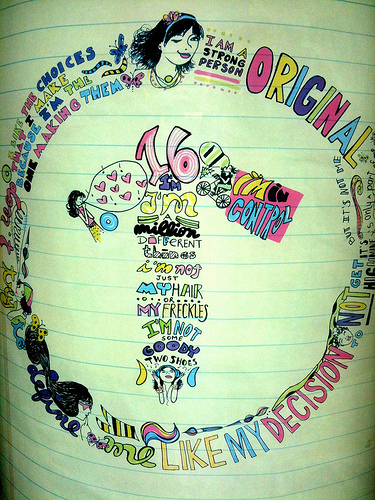 I AM A
STRONG
PERSON
ORIGINAL
BUT IT'S NOT ME
IT'S only a part of me
HIGH
NOT GET
TO
DECISION
MY
LIKE
me
define
I LIKE THE CHOICES
BECAUSE I MAKE
I'M THE
ONE MAKING THEM
16
I'M
I'M
A
million
DIFFERENT
things
i'm not
JUST
MY HAIR
OR
MY FRECKLES
I'M NOT
SOME
GOODY
TWO SHOES
I'M IN
CONTROL